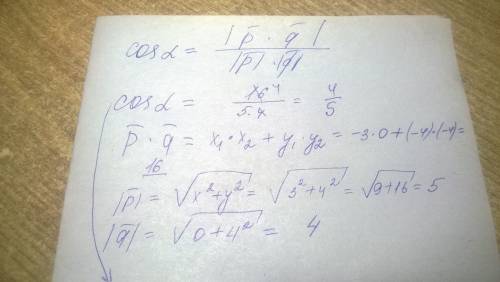 cosα = |p̄ · q̄| / |p̄| · |q̄|
cosα = 16⁴ / 5·4 = 4/5
p̄ · q̄ = x₁·x₂ + y₁·y₂ = -3·0 + (-4)·(-4) =
16
|p̄| = √(x² + y²) = √(3² + 4²) = √(9 + 16) = 5
|q̄| = √(0 + 4²) = 4